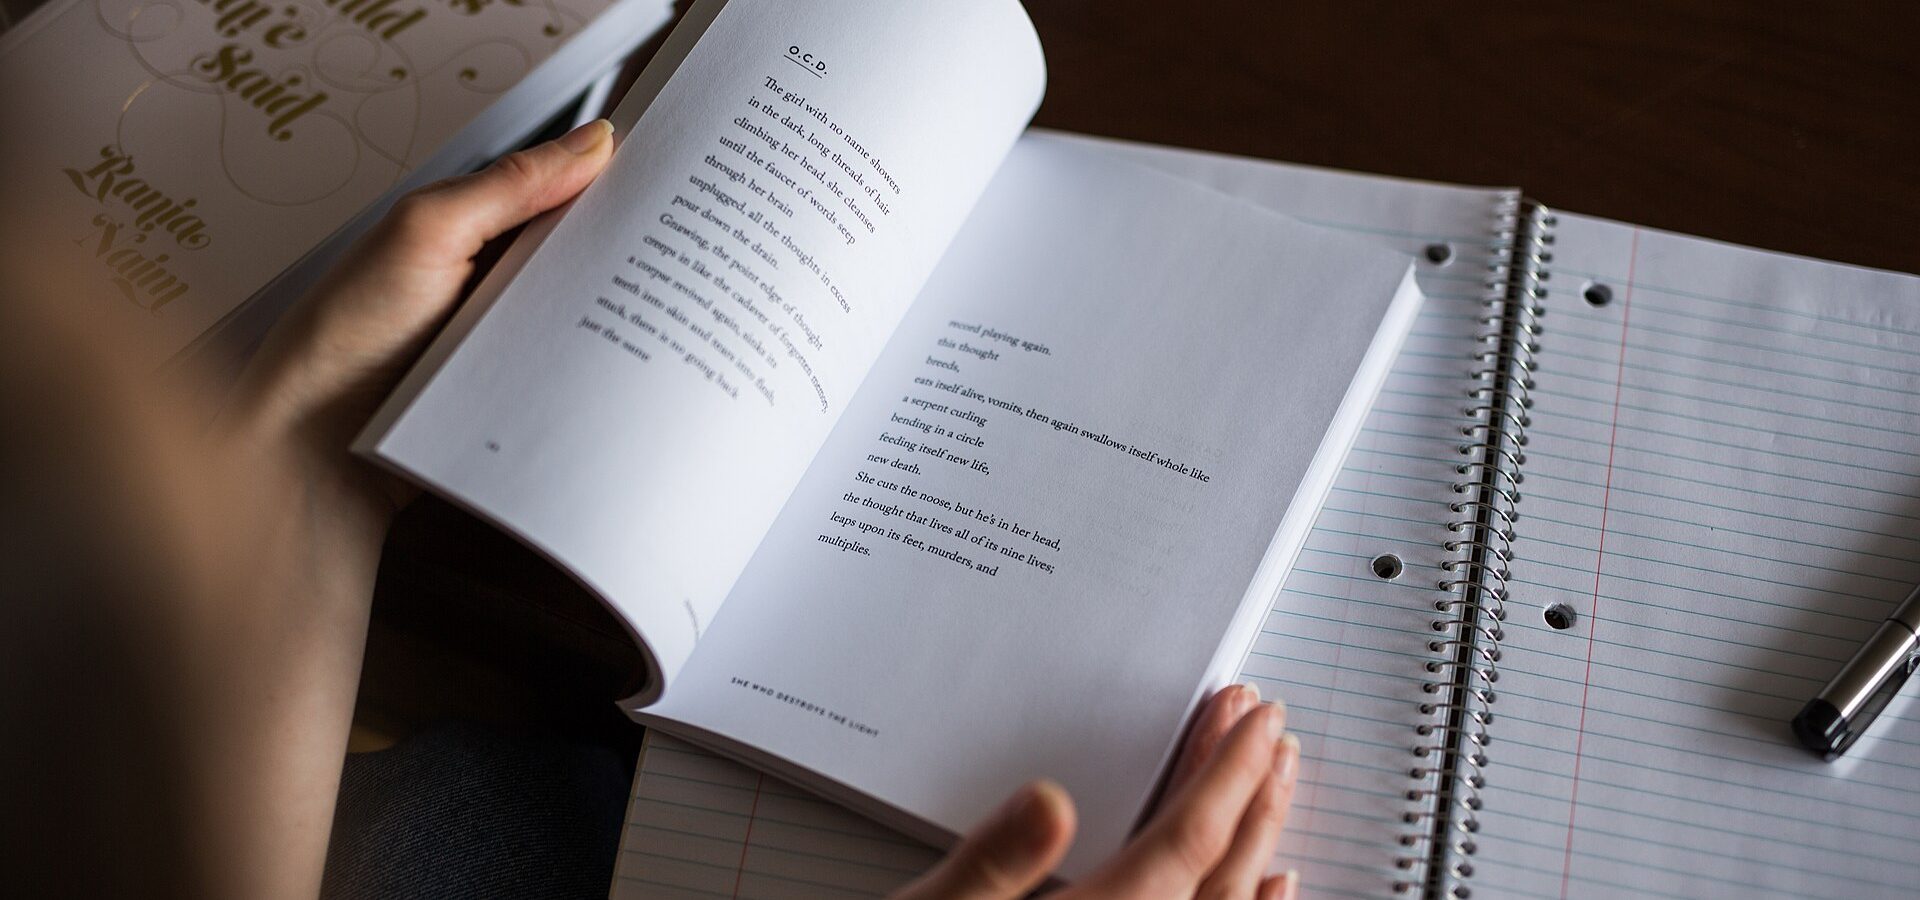 said
Rania
Naim
O.C.D.
The girl with no name showers
in the dark, long threads of hair
climbing her head, she cleanses
until the faucet of words seep
through her brain
unplugged, all the thoughts in excess
pour down the drain.
Gnawing, the point edge of thought
creeps in like the cadaver of forgotten memory,
a corpse revived again, sinks its
teeth into skin and tears into flesh,
stuck, there is no going back
just the same
record playing again.
this thought
breeds,
eats itself alive, vomits, then again swallows itself whole like
a serpent curling
bending in a circle
feeding itself new life,
new death.
She cuts the noose, but he's in her head,
the thought that lives all of its nine lives;
leaps upon its feet, murders, and
multiplies.
SHE WHO DESTROYS THE LIGHT